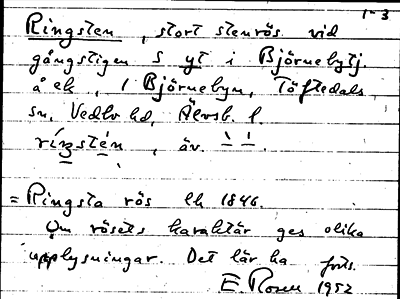 1-3
Ringsten, stort stenrös vid
gångstigen S yt i Björnebytj.
å ek, 1 Björnebyn, Töftedals
sn, Vedbo hd, Älvsb. l.
ríŋstén, äv. ` ` .
= Ringsta rös lk 1846.
Om rösets karaktär ges olika
upplysningar. Det lär ha forts.
E. Rosen 1952